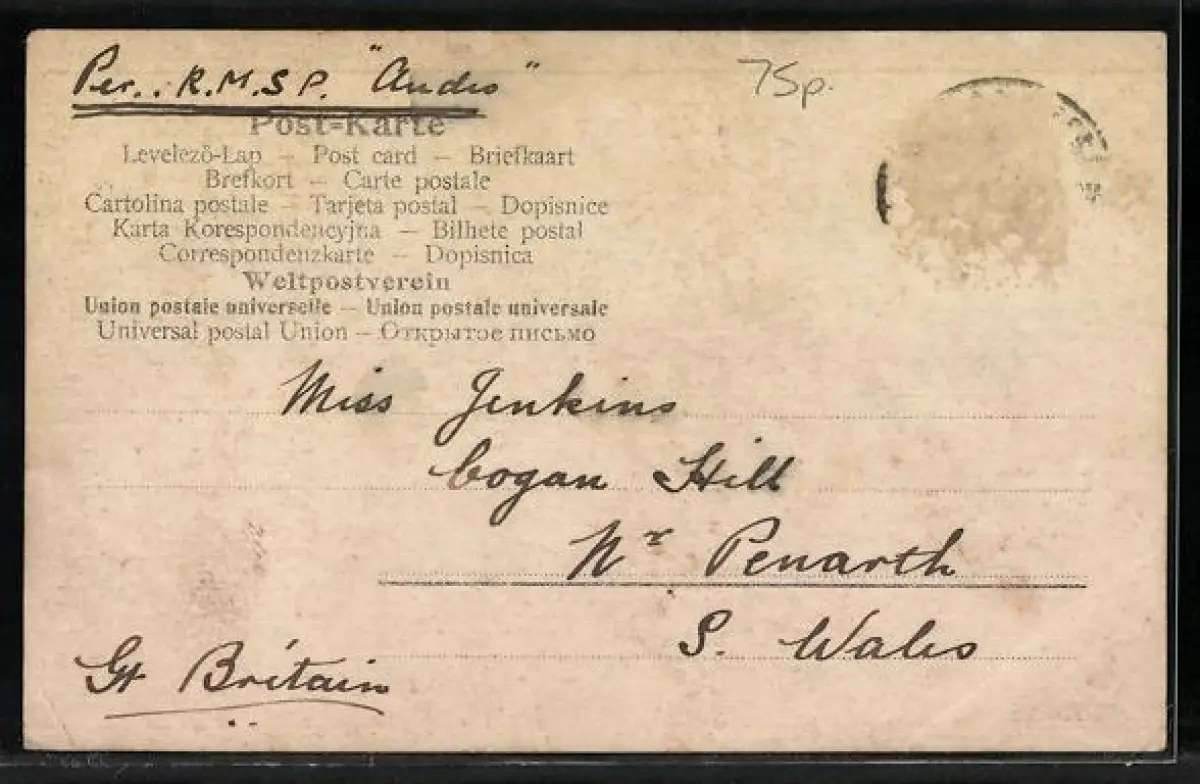 Per. R.M.S.P. "Andes"
75p.
Post=Karte
Levelező-Lap – Post card – Briefkaart
Brefkort – Carte postale
Cartolina postale – Tarjeta postal – Dopisnice
Karta Korespondencyjna – Bilhete postal
Correspondenzkarte – Dopisnica
Weltpostverein
Union postale universelle – Union postale universale
Universal postal Union – Открытое письмо
Miss Jenkins
Cogan Hill
Nr Penarth
S. Wales
Gt Britain